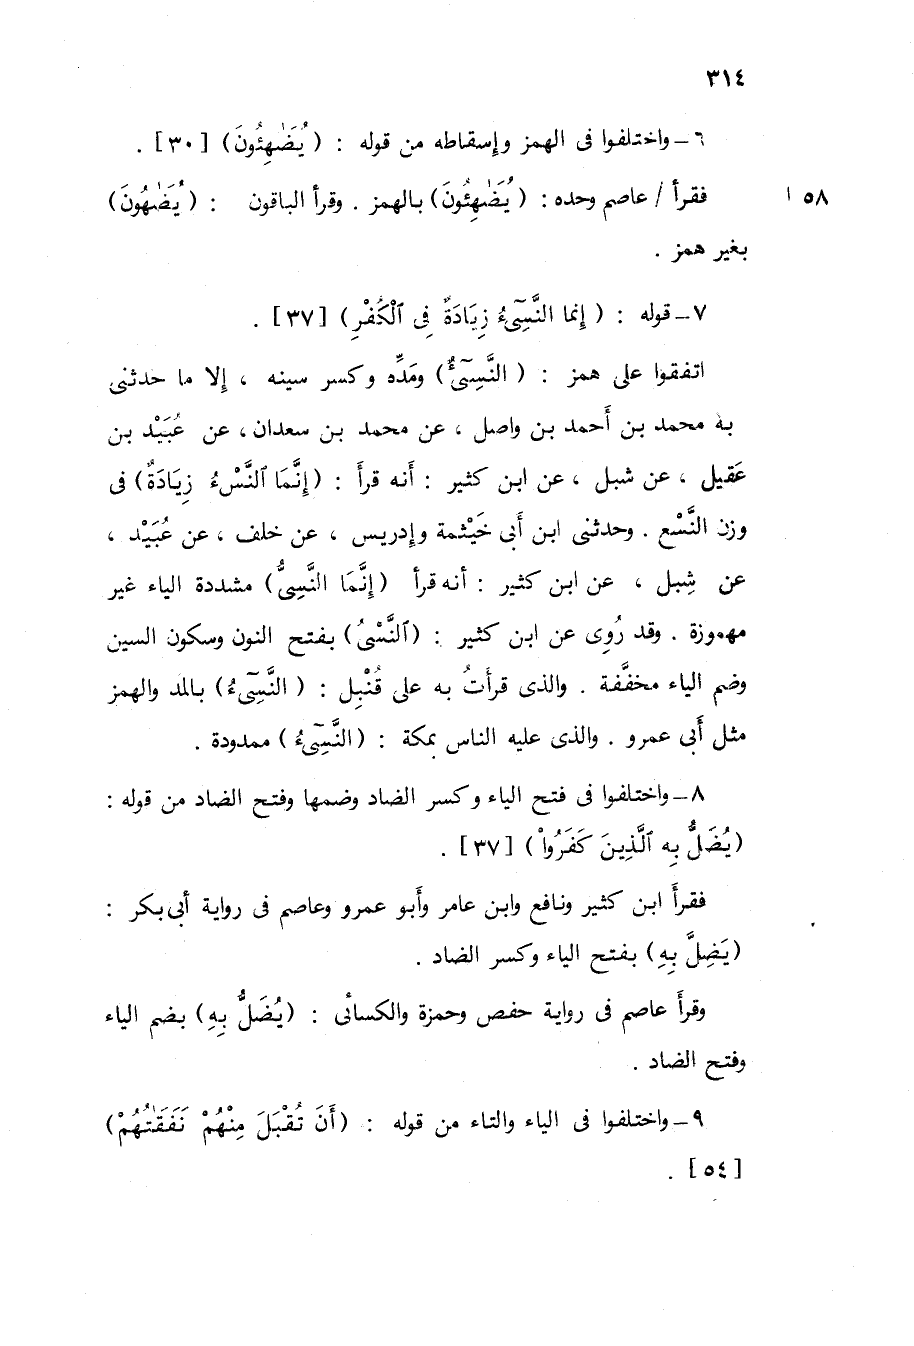 ٣١٤
٦ـ واختلفوا فى الهمز وإسقاطه من قوله : ( يُضَٰهِئُونَ ) [٣٠] .
٥٨ ا فقرأ / عاصم وحده : ( يُضَٰهِئُونَ ) بالهمز . وقرأ الباقون : ( يُضَٰهُونَ )
بغير همز .
٧ـ قوله : ( إِنما النَّسِىٓءُ زِيَادَةٌ فِى ٱلْكُفْرِ ) [٣٧] .
اتفقوا على همز : ( النَّسِىٓءُ ) ومَدِّه وكسر سينه ، إلا ما حدثنى
به محمد بن أَحمد بن واصل ، عن محمد بن سعدان ، عن عُبَيْد بن
عَقيل ، عن شبل ، عن ابن كثير : أَنه قرأَ : ( إِنَّمَا ٱلنَّسْءُ زِيَادَةٌ ) فى
وزن النَّسْع . وحدثنى ابن أَبى خَيْثمة وإدريس ، عن خلف ، عن عُبَيْد ،
عن شِبل ، عن ابن كثير : أنه قرأ ( إِنَّمَا النَّسِىُّ ) مشددة الياء غير
مهموزة . وقد رُوِى عن ابن كثير : ( ٱلنَّسْىُ ) بفتح النون وسكون السين
وضم الياء مخفَّفة . والذى قرأَتُ به على قُنْبِل : ( النَّسِىٓءُ ) بالمد والهمز
مثل أَبى عمرو . والذى عليه الناس بمكة : ( النَّسِىٓءُ ) ممدودة .
٨ـ واختلفوا فى فتح الياء وكسر الضاد وضمها وفتح الضاد من قوله :
( يُضَلُّ بِه ٱلَّذِينَ كَفَرُواْ ) [٣٧] .
فقرأَ ابن كثير ونافع وابن عامر وأَبو عمرو وعاصم فى رواية أبى بكر :
( يَضِلُّ بِهِ ) بفتح الياء وكسر الضاد .
وقرأَ عاصم فى رواية حفص وحمزة والكسائى : ( يُضَلُّ بِهِ ) بضم الياء
وفتح الضاد .
٩ـ واختلفوا فى الياء والتاء من قوله : ( أَن تُقْبَلَ مِنْهُمْ نَفَقَٰتُهُمْ )
[٥٤] .